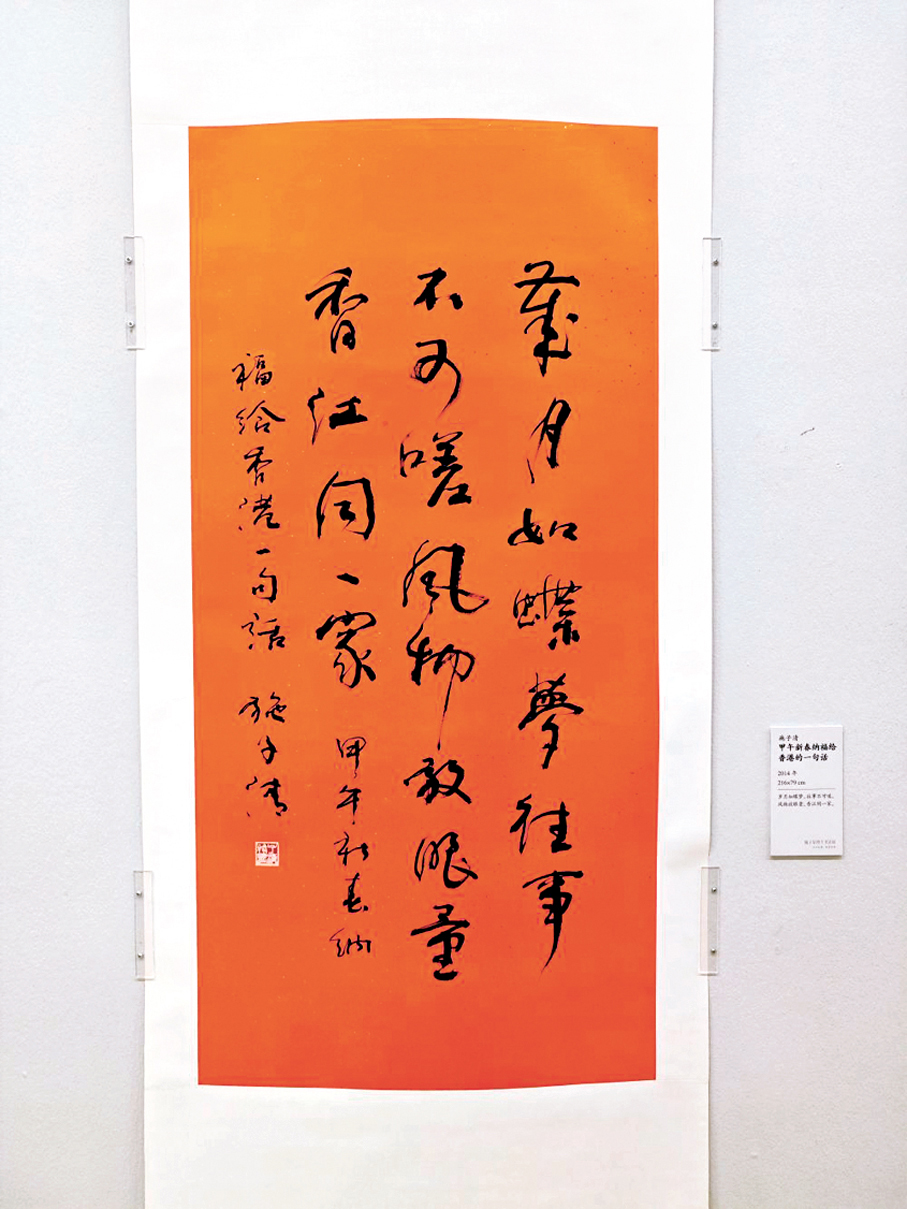 歲月如蝶夢往事
不可嗟風物放眼量
香江同一家 甲午新春納
福給香港一句話 施子清
施子清
甲午新春纳福给
香港的一句话
2014 年
216×79 cm
岁月如蝶梦，往事不可嗟。
风物放眼量，香江同一家。